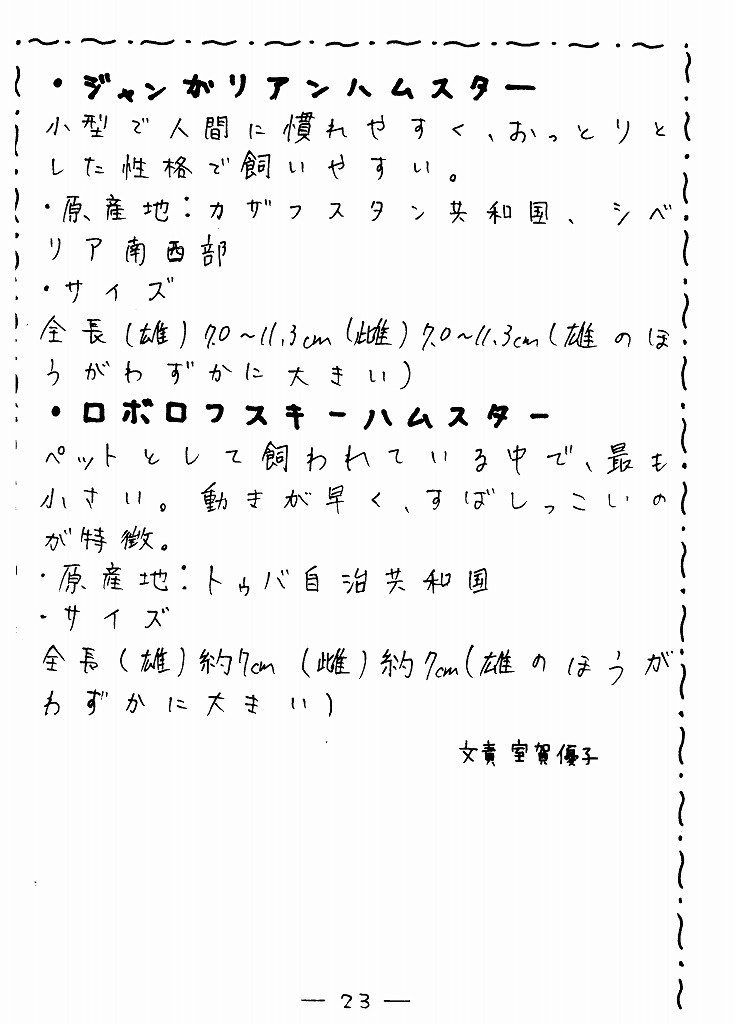 ・ジャンガリアンハムスター
小型で人間に慣れやすく、おっとりと
した性格で飼いやすい。
・原産地：カザフスタン共和国、シベ
リア南西部
・サイズ
全長(雄)7.0～11.3cm(雌)7.0～11.3cm(雄のほ
うがわずかに大きい)
・ロボロフスキーハムスター
ペットとして飼われている中で、最も
小さい。動きが早く、すばしっこいの
が特徴。
・原産地：トゥバ自治共和国
・サイズ
全長(雄)約7cm (雌)約7cm(雄のほうが
わずかに大きい)
文責 室賀優子
— 23 —